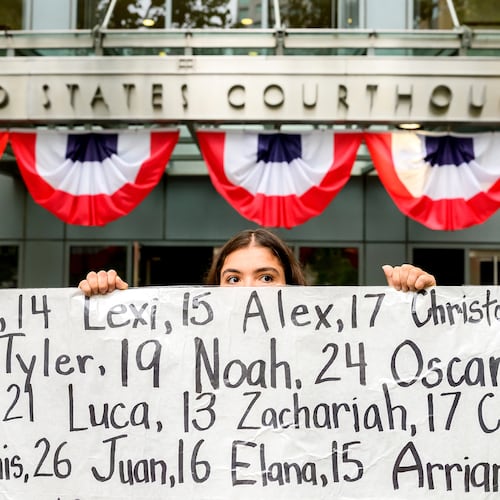 D STATES COURTHOU
, 14 Lexi, 15 Alex, 17 Christo
Tyler, 19 Noah, 24 Oscar
21 Luca, 13 Zachariah, 17 C
is, 26 Juan, 16 Elana, 15 Arrian